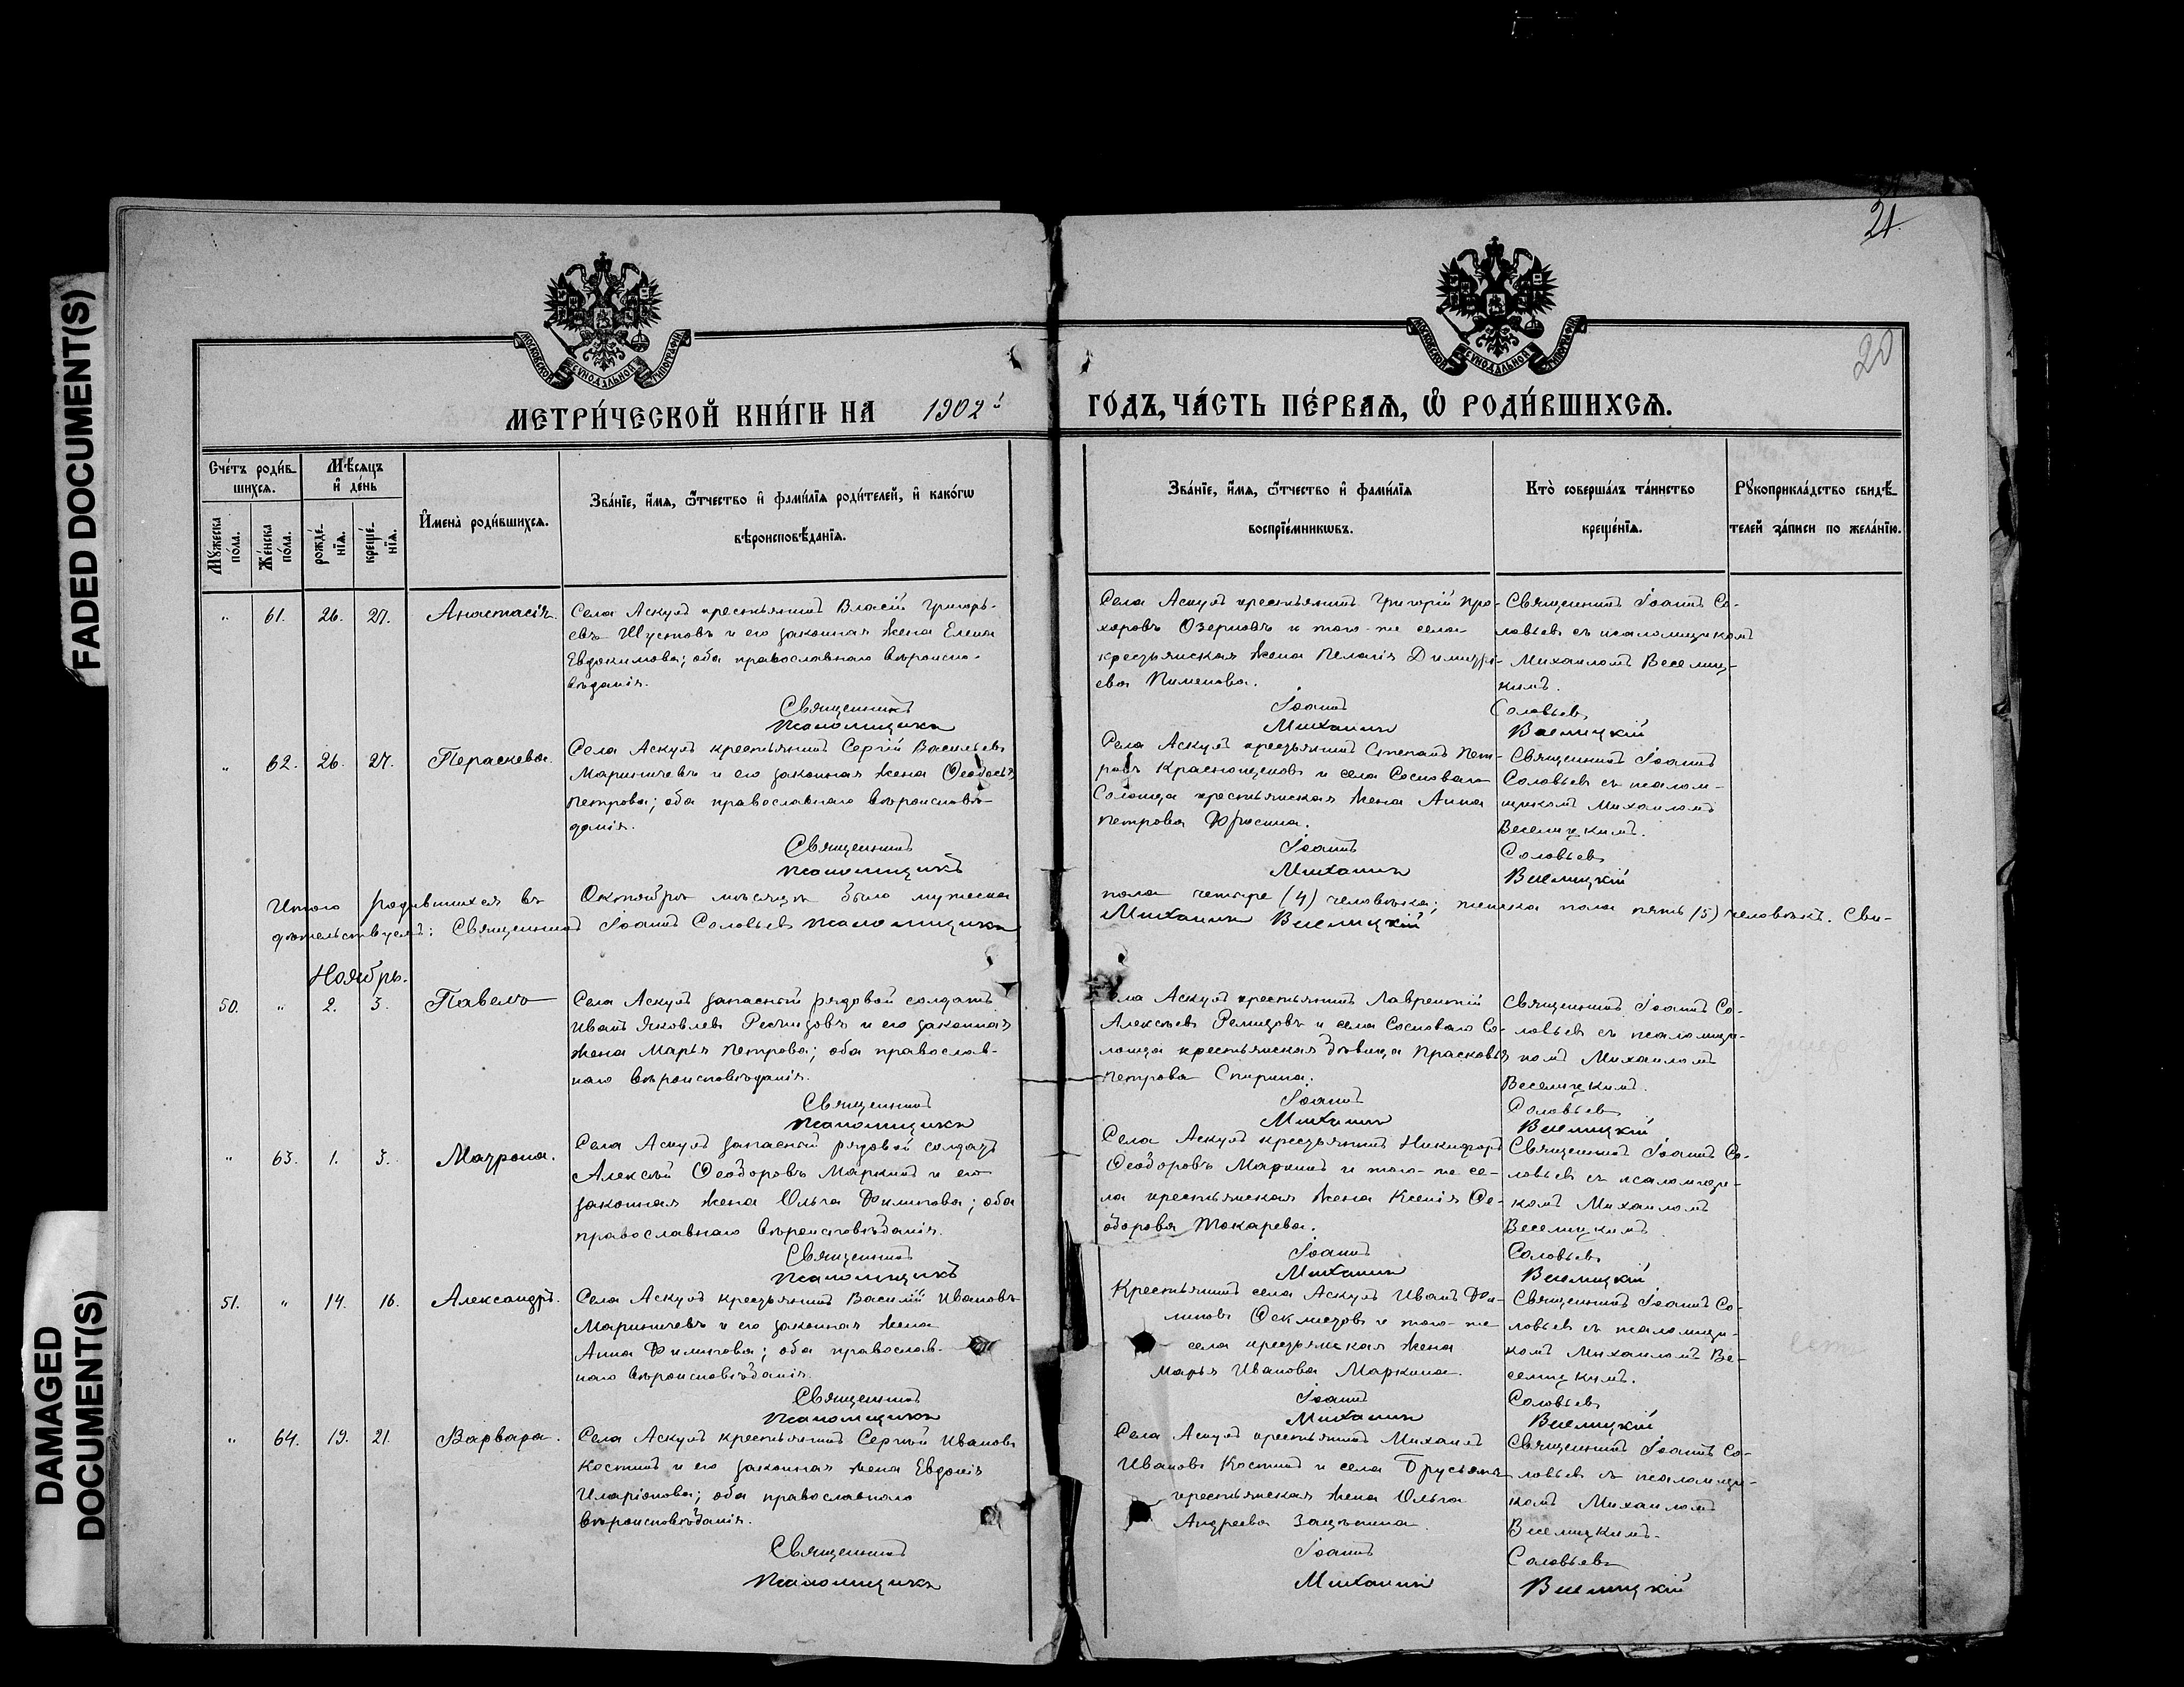 FADED DOCUMENT(S)
DAMAGED
DOCUMENT(S)
21.
20
МОСКОВСКОЙ СѴНОДАЛЬНОЙ ТИПОГРАФІИ
МОСКОВСКОЙ СѴНОДАЛЬНОЙ ТИПОГРАФІИ
МЕТРИ́ЧЕСКОЙ КНИ́ГИ НА 1902й ГО́ДЪ, ЧА́СТЬ ПЕ́РВАѦ, Ѡ҆ РОДИ́ВШИХСѦ.
Сче́тъ роди́в-
шихсѧ.
Мꙋ́жеска по́ла.
Же́нска по́ла.
Мѣ́сѧцъ
и҆ де́нь
рожде́-
нїѧ.
креще́-
нїѧ.
И҆мена̀ роди́вшихсѧ.
Зва́нїе, и҆́мѧ, ѻ҆́тчество и҆ фами́лїѧ роди́телей, и҆ како́гѡ
вѣроисповѣ́данїѧ.
Зва́нїе, и҆́мѧ, ѻ҆́тчество и҆ фами́лїѧ
воспрїе́мникѡвъ.
Кто̀ соверша́лъ та́инство
креще́нїѧ.
Рꙋкоприкла́дство свидѣ́-
телей за́писи по жела́нїю.
" 61. 26. 27. Анастасія.
Села Аскулъ крестьянинъ Власій Григорь-
евъ Шустовъ и его законная жена Елена
Евдокимова; оба православнаго вѣроиспо-
вѣданія.
Священникъ
Псаломщикъ
Села Аскулъ крестьянинъ Григорій Про-
хоровъ Озерновъ и того-же села
крестьянская жена Пелагія Димитрі-
ева Пименова.
Іоаннъ
Михаилъ
Священникъ Іоаннъ Со-
ловьевъ съ псаломщикомъ
Михаиломъ Веселиц-
кимъ.
Соловьевъ
Веселицкій
" 62. 26. 27. Параскева.
Села Аскулъ крестьянинъ Сергій Васильевъ
Мариничевъ и его законная жена Ѳеодосія
Петрова; оба православнаго вѣроисповѣ-
данія.
Священникъ
Псаломщикъ
Села Аскулъ крестьянинъ Стефанъ Пет-
ровъ Краснощековъ и села Сосноваго
Солонца крестьянская жена Анна
Петрова
Іоаннъ
Михаилъ
Священникъ Іоаннъ
Соловьевъ съ псалом-
щикомъ Михаиломъ
Веселицкимъ.
Соловьевъ
Веселицкій
Итого родившихся въ Октябрѣ мѣсяцѣ было мужеска пола четыре (4) человѣка; женска пола пять (5) человѣкъ. Сви-
дѣтельствуемъ: Священникъ Іоаннъ Соловьевъ Псаломщикъ Михаилъ Веселицкій
Ноябрь.
50. " 2. 3. Павелъ
Села Аскулъ запасный рядовой солдатъ
Иванъ Яковлевъ и его законная
жена Марья Петрова; оба православ-
наго вѣроисповѣданія.
Священникъ
Псаломщикъ
Села Аскулъ крестьянинъ Лаврентій
Алексѣевъ Ремизовъ и села Сосноваго Со-
лонца крестьянская дѣвица Прасковья
Петрова Спирина.
Іоаннъ
Михаилъ
Священникъ Іоаннъ Со-
ловьевъ съ псаломщи-
комъ Михаиломъ
Веселицкимъ.
Соловьевъ
Веселицкій
" 63. 1. 3. Матрона.
Села Аскулъ запасный рядовой солдатъ
Алексѣй Ѳеодоровъ Маркинъ и его
законная жена Ольга Филипова; оба
православнаго вѣроисповѣданія.
Священникъ
Псаломщикъ
Села Аскулъ крестьянинъ Никифоръ
Ѳеодоровъ Маркинъ и того-же се-
ла крестьянская жена Ксенія Ѳе-
одорова Токарева.
Іоаннъ
Михаилъ
Священникъ Іоаннъ Со-
ловьевъ съ псаломщи-
комъ Михаиломъ
Веселицкимъ
Соловьевъ
Веселицкій
51. " 14. 16. Александръ.
Села Аскулъ крестьянинъ Василій Ивановъ
Мариничевъ и его законная жена
Анна Филипова; оба православ-
наго вѣроисповѣданія.
Священникъ
Псаломщикъ
Крестьянинъ села Аскулъ Иванъ Фи-
липовъ и того-же
села крестьянская жена
Марья Иванова Маркина.
Іоаннъ
Михаилъ
Священникъ Іоаннъ Со-
ловьевъ съ псаломщи-
комъ Михаиломъ Ве-
селицкимъ.
Соловьевъ
Веселицкій
" 64. 19. 21. Варвара.
Села Аскулъ крестьянинъ Сергѣй Ивановъ
Костинъ и его законная жена Евдокія
Иларіонова; оба православнаго
вѣроисповѣданія.
Священникъ
Псаломщикъ
Села Аскулъ крестьянинъ Михаилъ
Ивановъ Костинъ и села Брусянъ
крестьянская жена Ольга
Андреева Зацѣпина.
Іоаннъ
Михаилъ
Священникъ Іоаннъ Со-
ловьевъ съ псаломщи-
комъ Михаиломъ
Веселицкимъ.
Соловьевъ
Веселицкій